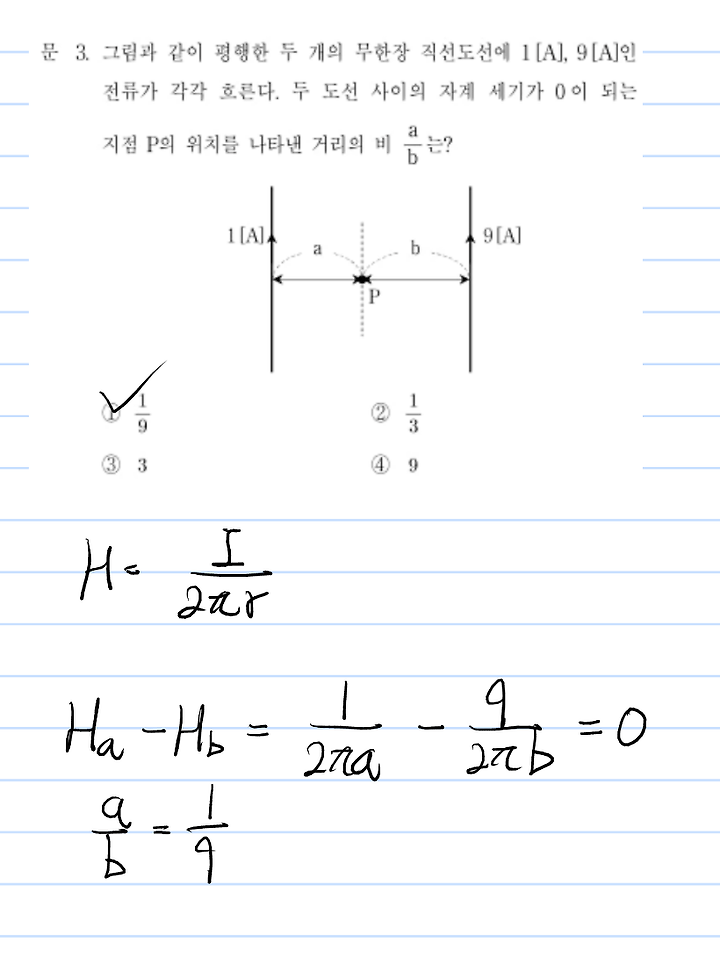 문 3. 그림과 같이 평행한 두 개의 무한장 직선도선에 1[A], 9[A]인
전류가 각각 흐른다. 두 도선 사이의 자계 세기가 0이 되는
지점 P의 위치를 나타낸 거리의 비 a/b 는?
1[A] a b 9[A]
P
① 1/9 ② 1/3
③ 3 ④ 9
H = I/2πr
Ha - Hb = 1/2πa - 9/2πb = 0
a/b = 1/9